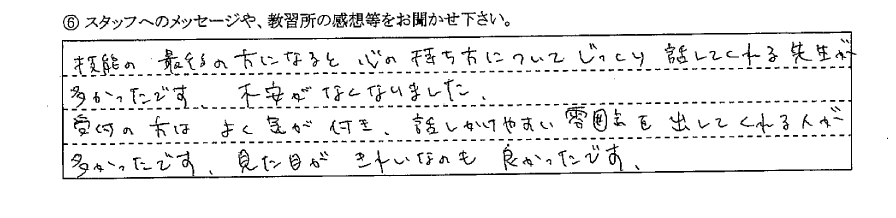 ⑥ スタッフへのメッセージや、教習所の感想等をお聞かせ下さい。
技能の最後の方になると心の持ち方についてじっくり話してくれる先生が
多かったです、不安がなくなりました、
受付の方はよく気が付き、話しかけやすい雰囲気を出してくれる人が
多かったです、見た目がきれいなのも良かったです、